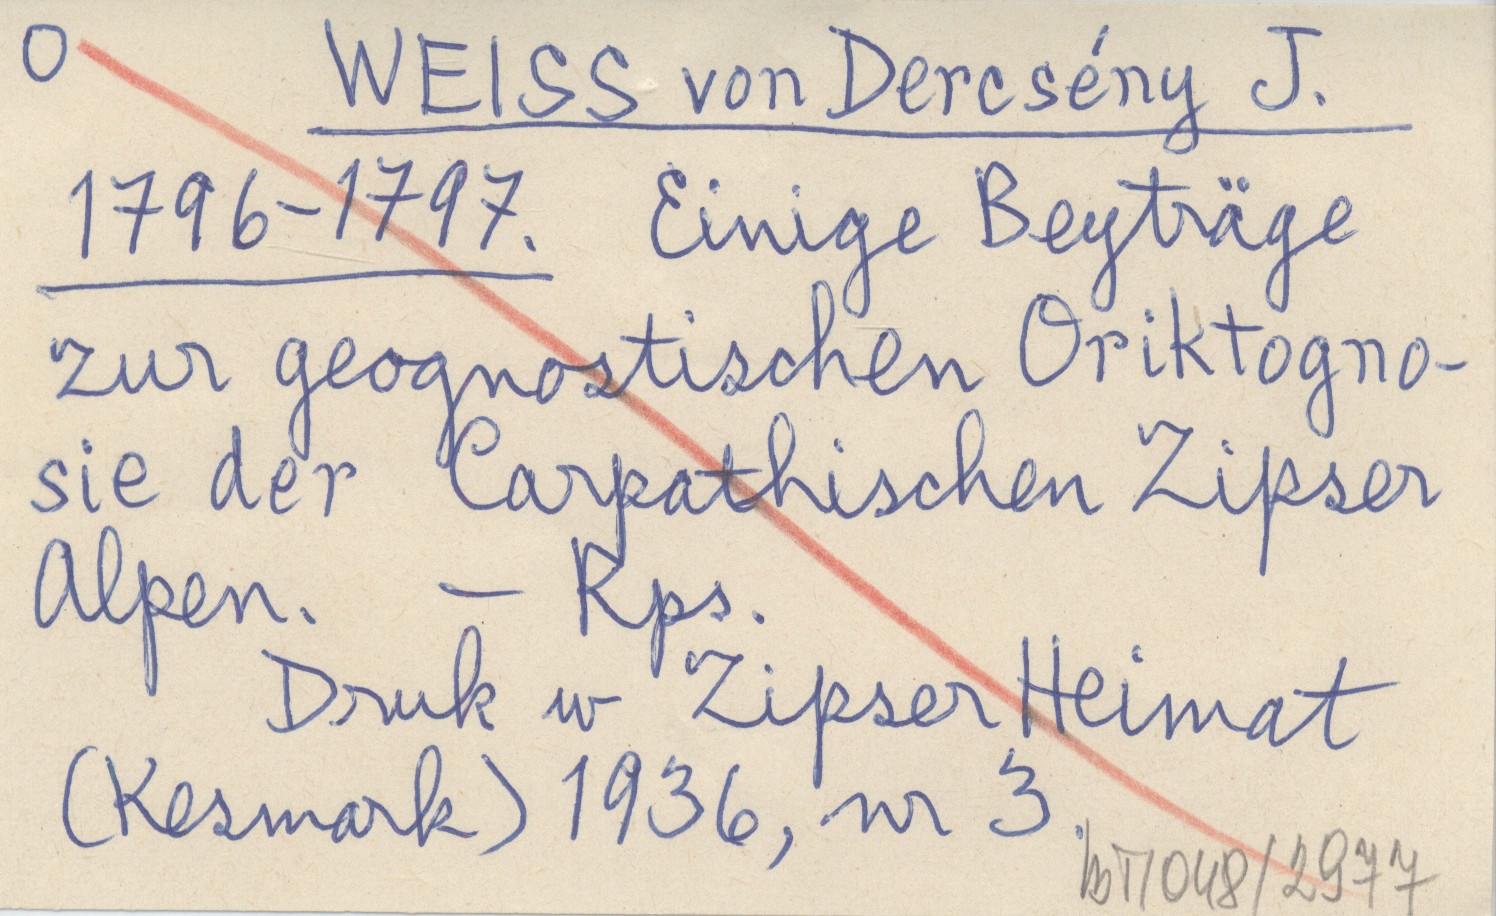 O WEISS von Dercsény J.
1796-1797. Einige Beyträge
zur geognostischen Oriktogno-
sie der Carpathischen Zipser
Alpen. — Rps.
Druk w Zipser Heimat
(Kesmark) 1936, nr 3.
bT/048/2977